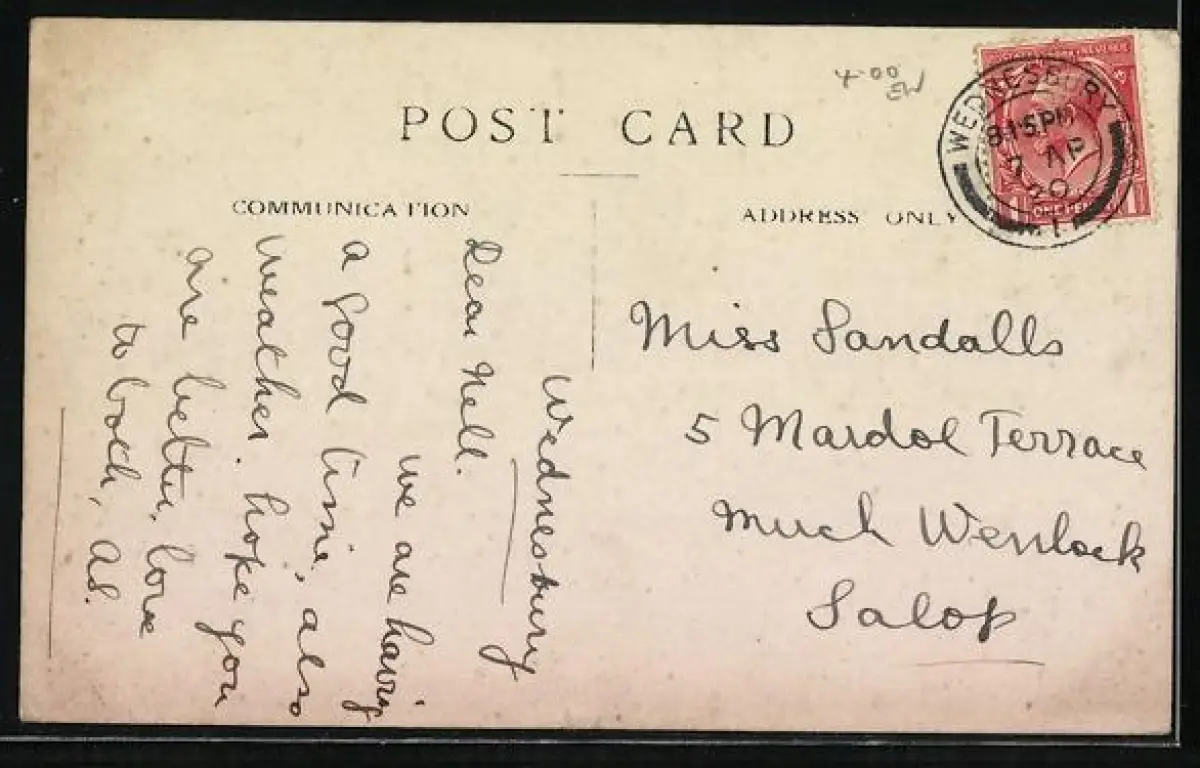 4-00
EW
POST CARD
COMMUNICATION
ADDRESS ONLY
WEDNESBURY
8.15 PM
7 AP
20
1
POSTAGE REVENUE
1 ONE PENNY 1
Wednesbury
Dear Nell.
we are having
a good time, also
weather. hope you
are better, love
to both, Ad.
Miss Sandalls
5 Mardol Terrace
Much Wenlock
Salop